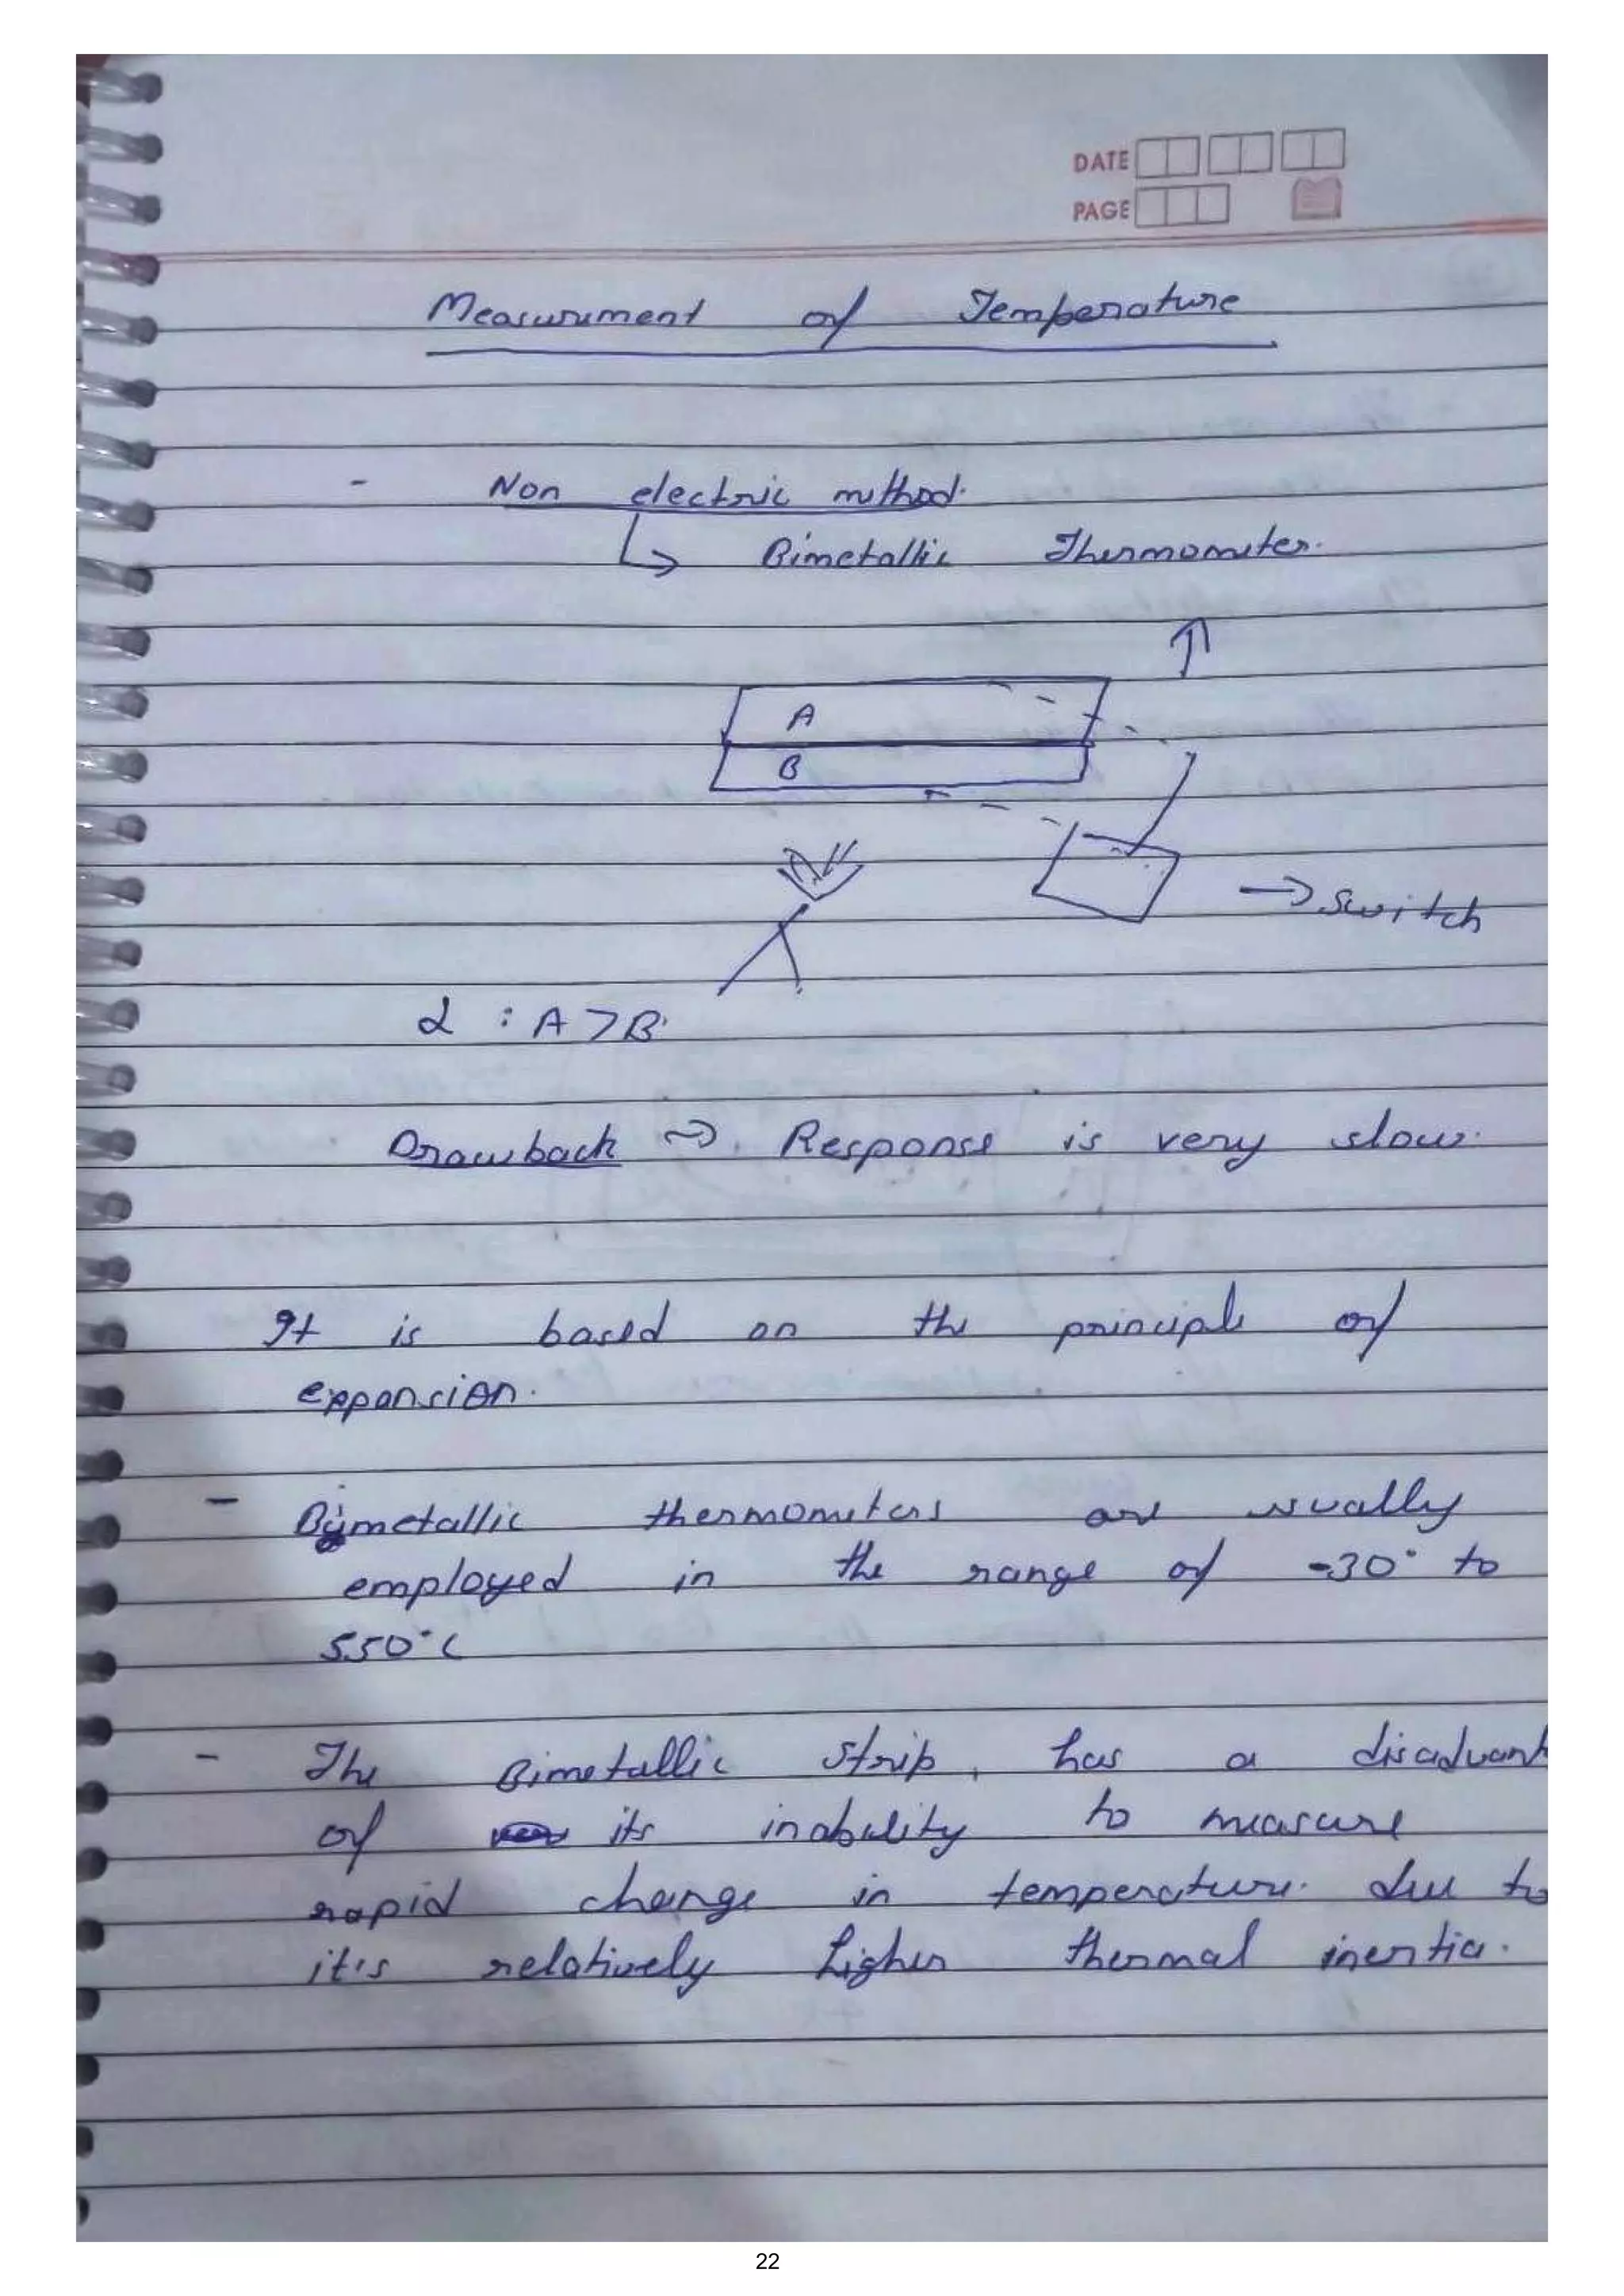 DATE
PAGE
Measurement of Temperature
- Non electric method.
↳ Bimetallic Thermometer.
A
B
→ Switch
α : A > B.
Drawback → Response is very slow.
It is based on the principle of
expansion.
- Bimetallic thermometers are usually
employed in the range of -30° to
550°C
- The Bimetallic strip, has a disadvant
of its inability to measure
rapid change in temperature. due to
it's relatively higher thermal inertia.
22